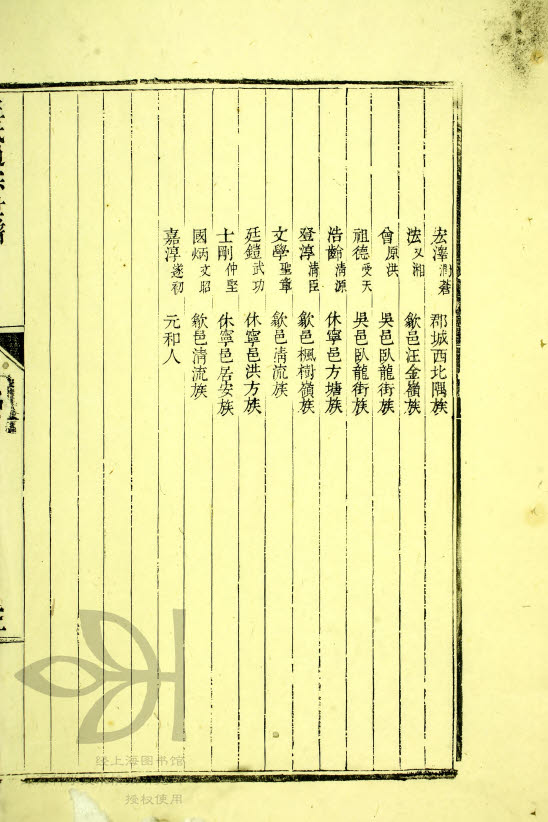 宏澤 澍蒼 郡城西北隅族
法 又湘 歙邑汪金嶺族
曾 原洪 吳邑臥龍街族
祖德 受天 吳邑臥龍街族
浩齡 清源 休寧邑方塘族
登淳 清臣 歙邑楓樹嶺族
文學 聖章 歙邑清流族
廷鎧 武功 休寧邑洪方族
士剛 仲堅 休寧邑居安族
國炳 文昭 歙邑清流族
嘉淳 遂初 元和人
经上海图书馆
授权使用